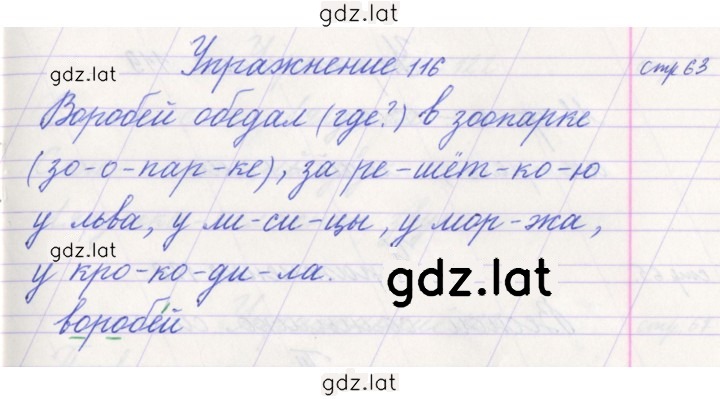 gdz.lat
Упражнение 116 стр 63
gdz.lat
Воробей обедал (где?) в зоопарке
(зо-о-пар-ке), за ре-шёт-ко-ю
у льва, у ли-си-цы, у мор-жа,
gdz.lat
у кро-ко-ди-ла.
gdz.lat
воробей
gdz.lat